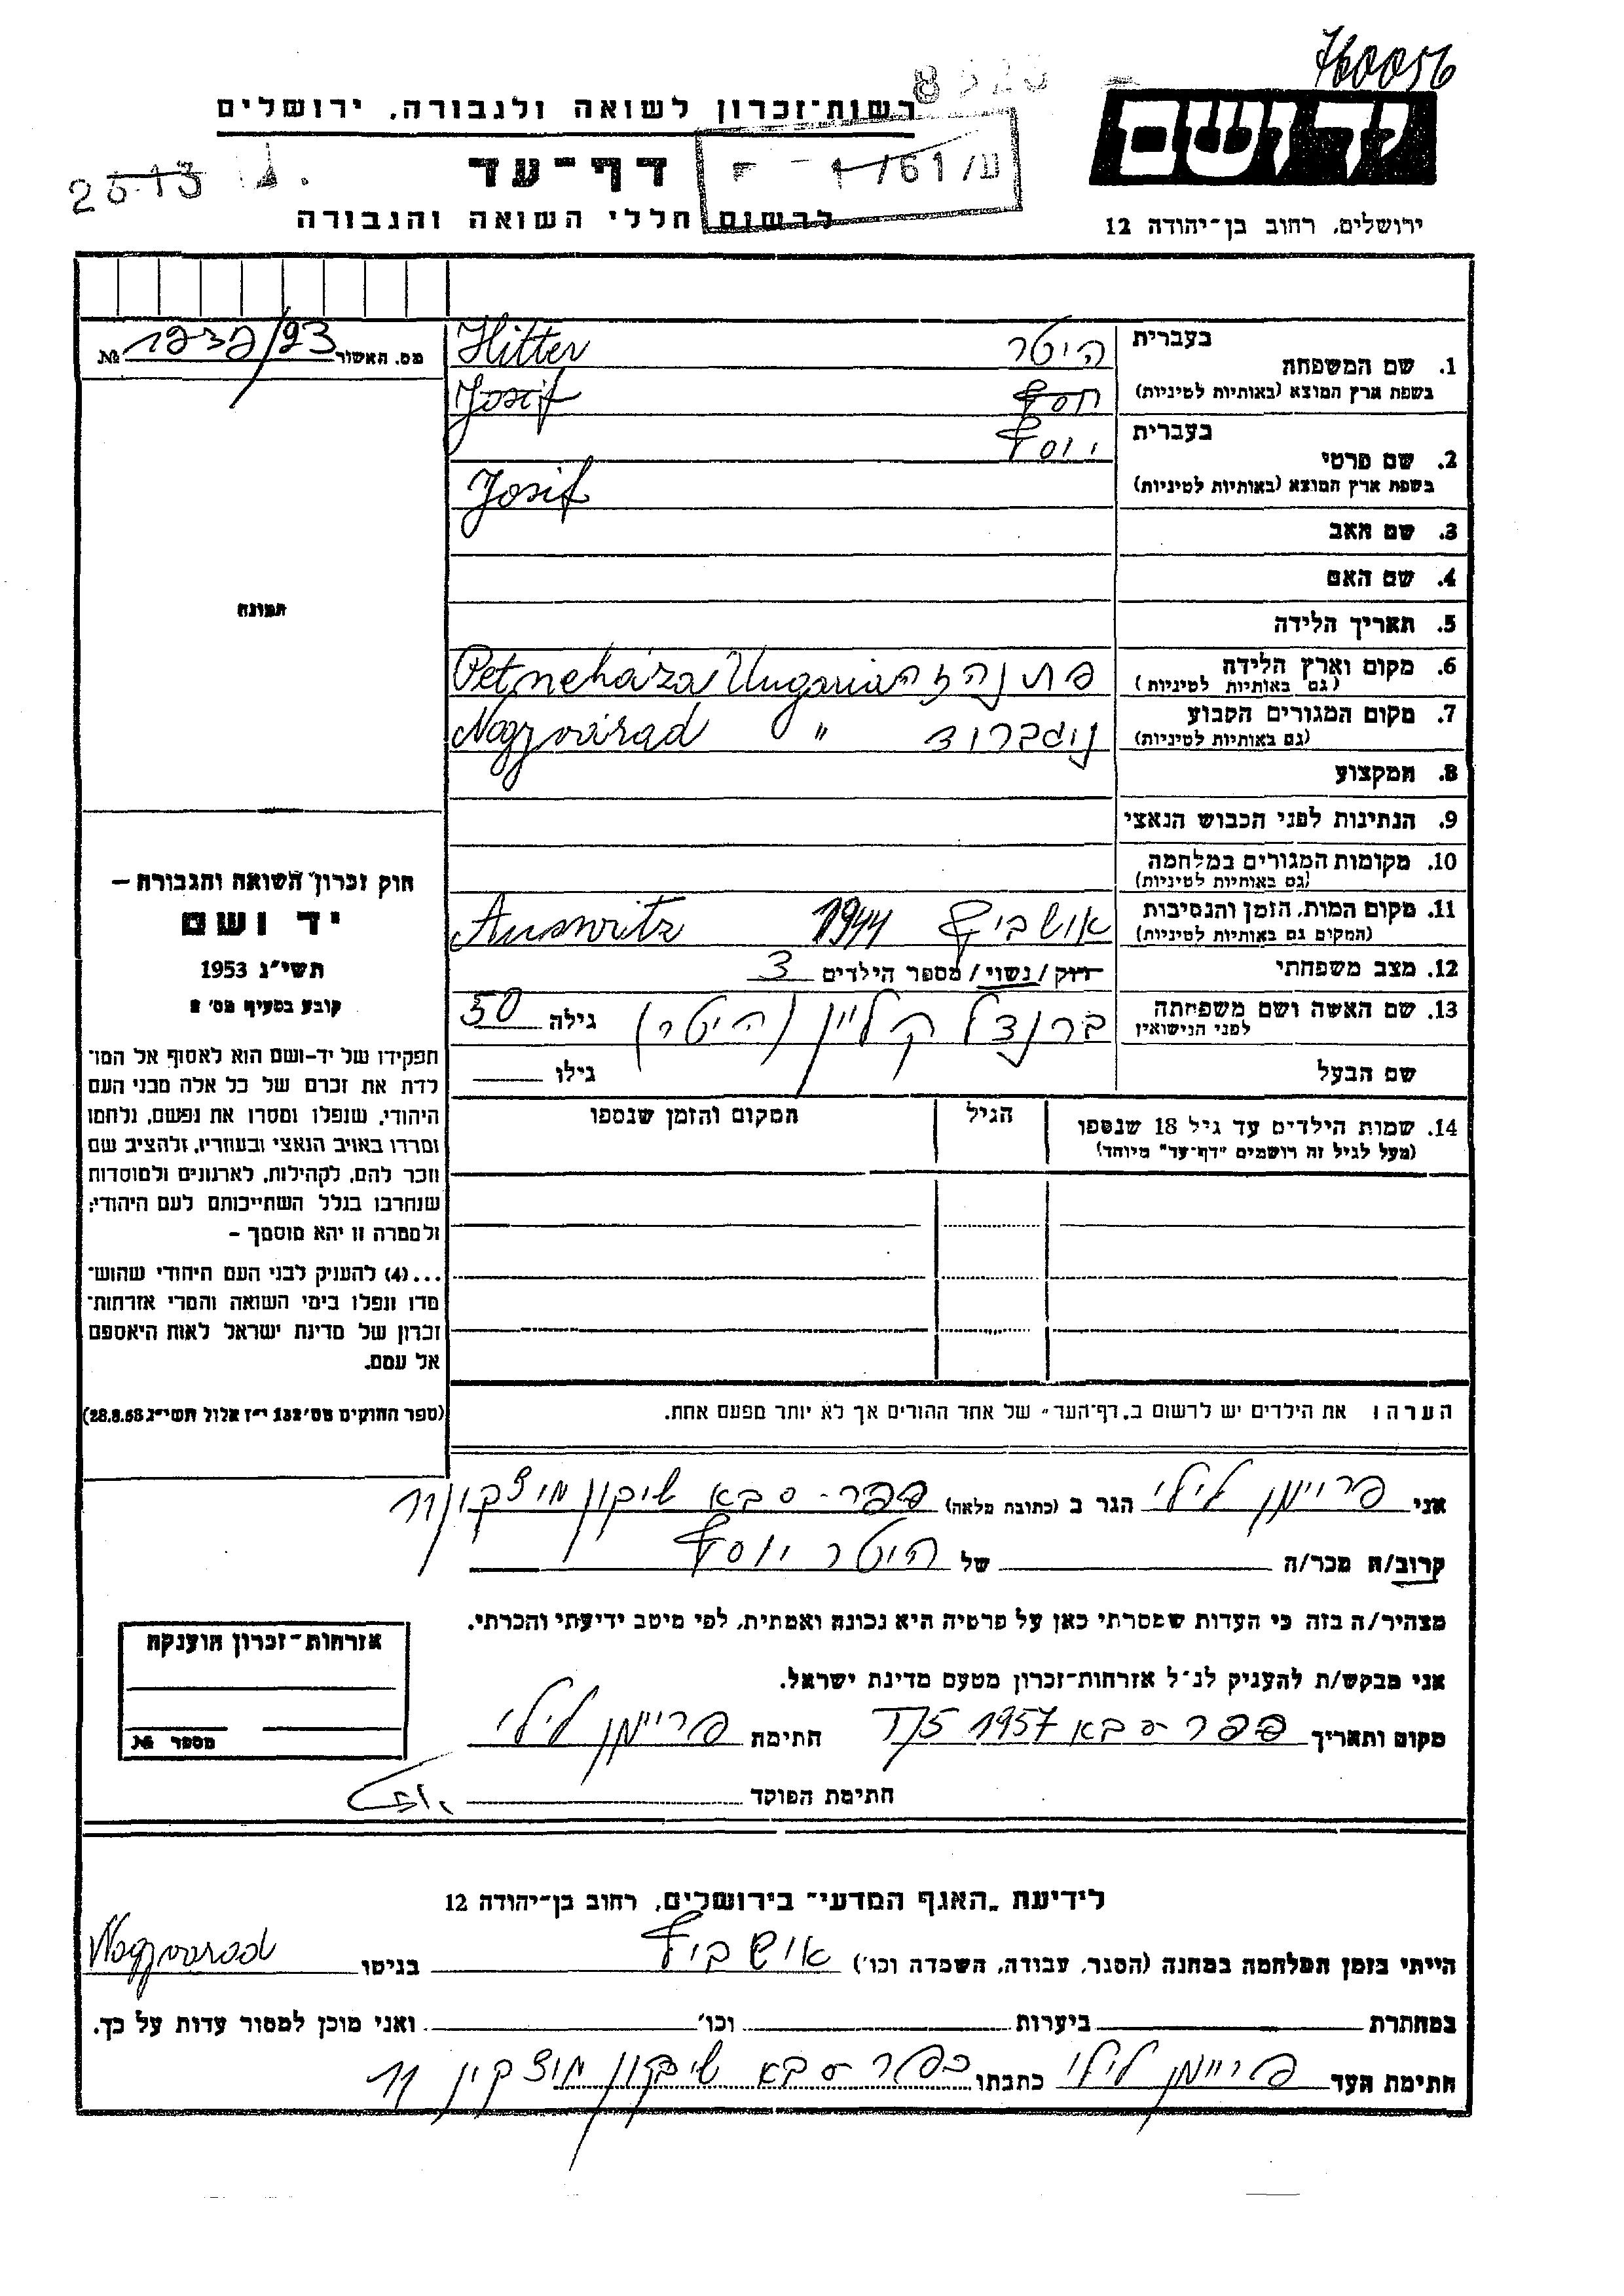 760056
8523
רשות־זכרון לשואה ולגבורה, ירושלים
יד ושם
דף־עד
ע/61/1
2513
לרשום חללי השואה והגבורה
ירושלים, רחוב בן־יהודה 12
1. שם המשפחה
בעברית היטר
בשפת ארץ המוצא (באותיות לטיניות) Hitter
יוסף Josif
2. שם פרטי
בעברית יוסף
בשפת ארץ המוצא (באותיות לטיניות) Josif
מס. האשור № 1232/93
3. שם האב
4. שם האם
5. תאריך הלידה
6. מקום וארץ הלידה פתנהזה Petneháza Ungaria
(גם באותיות לטיניות)
7. מקום המגורים הקבוע נגברוד Nagyvárad "
(גם באותיות לטיניות)
8. המקצוע
9. הנתינות לפני הכבוש הנאצי
10. מקומות המגורים במלחמה
(גם באותיות לטיניות)
11. מקום המות, הזמן והנסיבות אושביץ 1944 Auswitz
(המקום גם באותיות לטיניות)
12. מצב משפחתי רוק/נשוי/מספר הילדים 3
13. שם האשה ושם משפחתה ברנצל קליין (היטר) גילה 50
לפני הנישואין
שם הבעל גילו
14. שמות הילדים עד גיל 18 שנספו הגיל המקום והזמן שנספו
(מעל לגיל זה רושמים "דף־עד" מיוחד)
הערה: את הילדים יש לרשום ב„דף־העד" של אחד ההורים אך לא יותר מפעם אחת.
תמונה
חוק זכרון השואה והגבורה –
יד ושם
תשי"ג 1953
קובע בסעיף מס' 2
תפקידו של יד־ושם הוא לאסוף אל המו־
לדת את זכרם של כל אלה מבני העם
היהודי, שנפלו ומסרו את נפשם, נלחמו
ומרדו באויב הנאצי ובעוזריו, ולהציב שם
וזכר להם, לקהילות, לארגונים ולמוסדות
שנחרבו בגלל השתייכותם לעם היהודי;
ולמטרה זו יהא מוסמך –
...(4) להעניק לבני העם היהודי שהוש־
מדו ונפלו בימי השואה והמרי אזרחות־
זכרון של מדינת ישראל לאות היאספם
אל עמם.
(ספר החוקים מס' 132 י"ז אלול תשי"ג 28.8.53)
אני פריימן לילי הגר ב (כתובת מלאה) כפר-סבא שיכון מוצקין 11
קרוב/ה מכר/ה של היטר יוסף
מצהיר/ה בזה כי העדות שמסרתי כאן על פרטיה היא נכונה ואמתית, לפי מיטב ידיעתי והכרתי.
אני מבקש/ת להעניק לנ"ל אזרחות־זכרון מטעם מדינת ישראל.
מקום ותאריך כפר-סבא 1957 חתימת פריימן לילי
חתימת הפוקד
אזרחות־זכרון הוענקה
מספר №
לידיעת „האגף המדעי" בירושלים, רחוב בן־יהודה 12
הייתי בזמן המלחמה במחנה (הסגר, עבודה, השמדה וכו') אושביץ בגיטו Nagyvarad
במחתרת ביערות וכו' ואני מוכן למסור עדות על כך.
חתימת העד פריימן לילי כתבתו כפר-סבא שיכון מוצקין 11